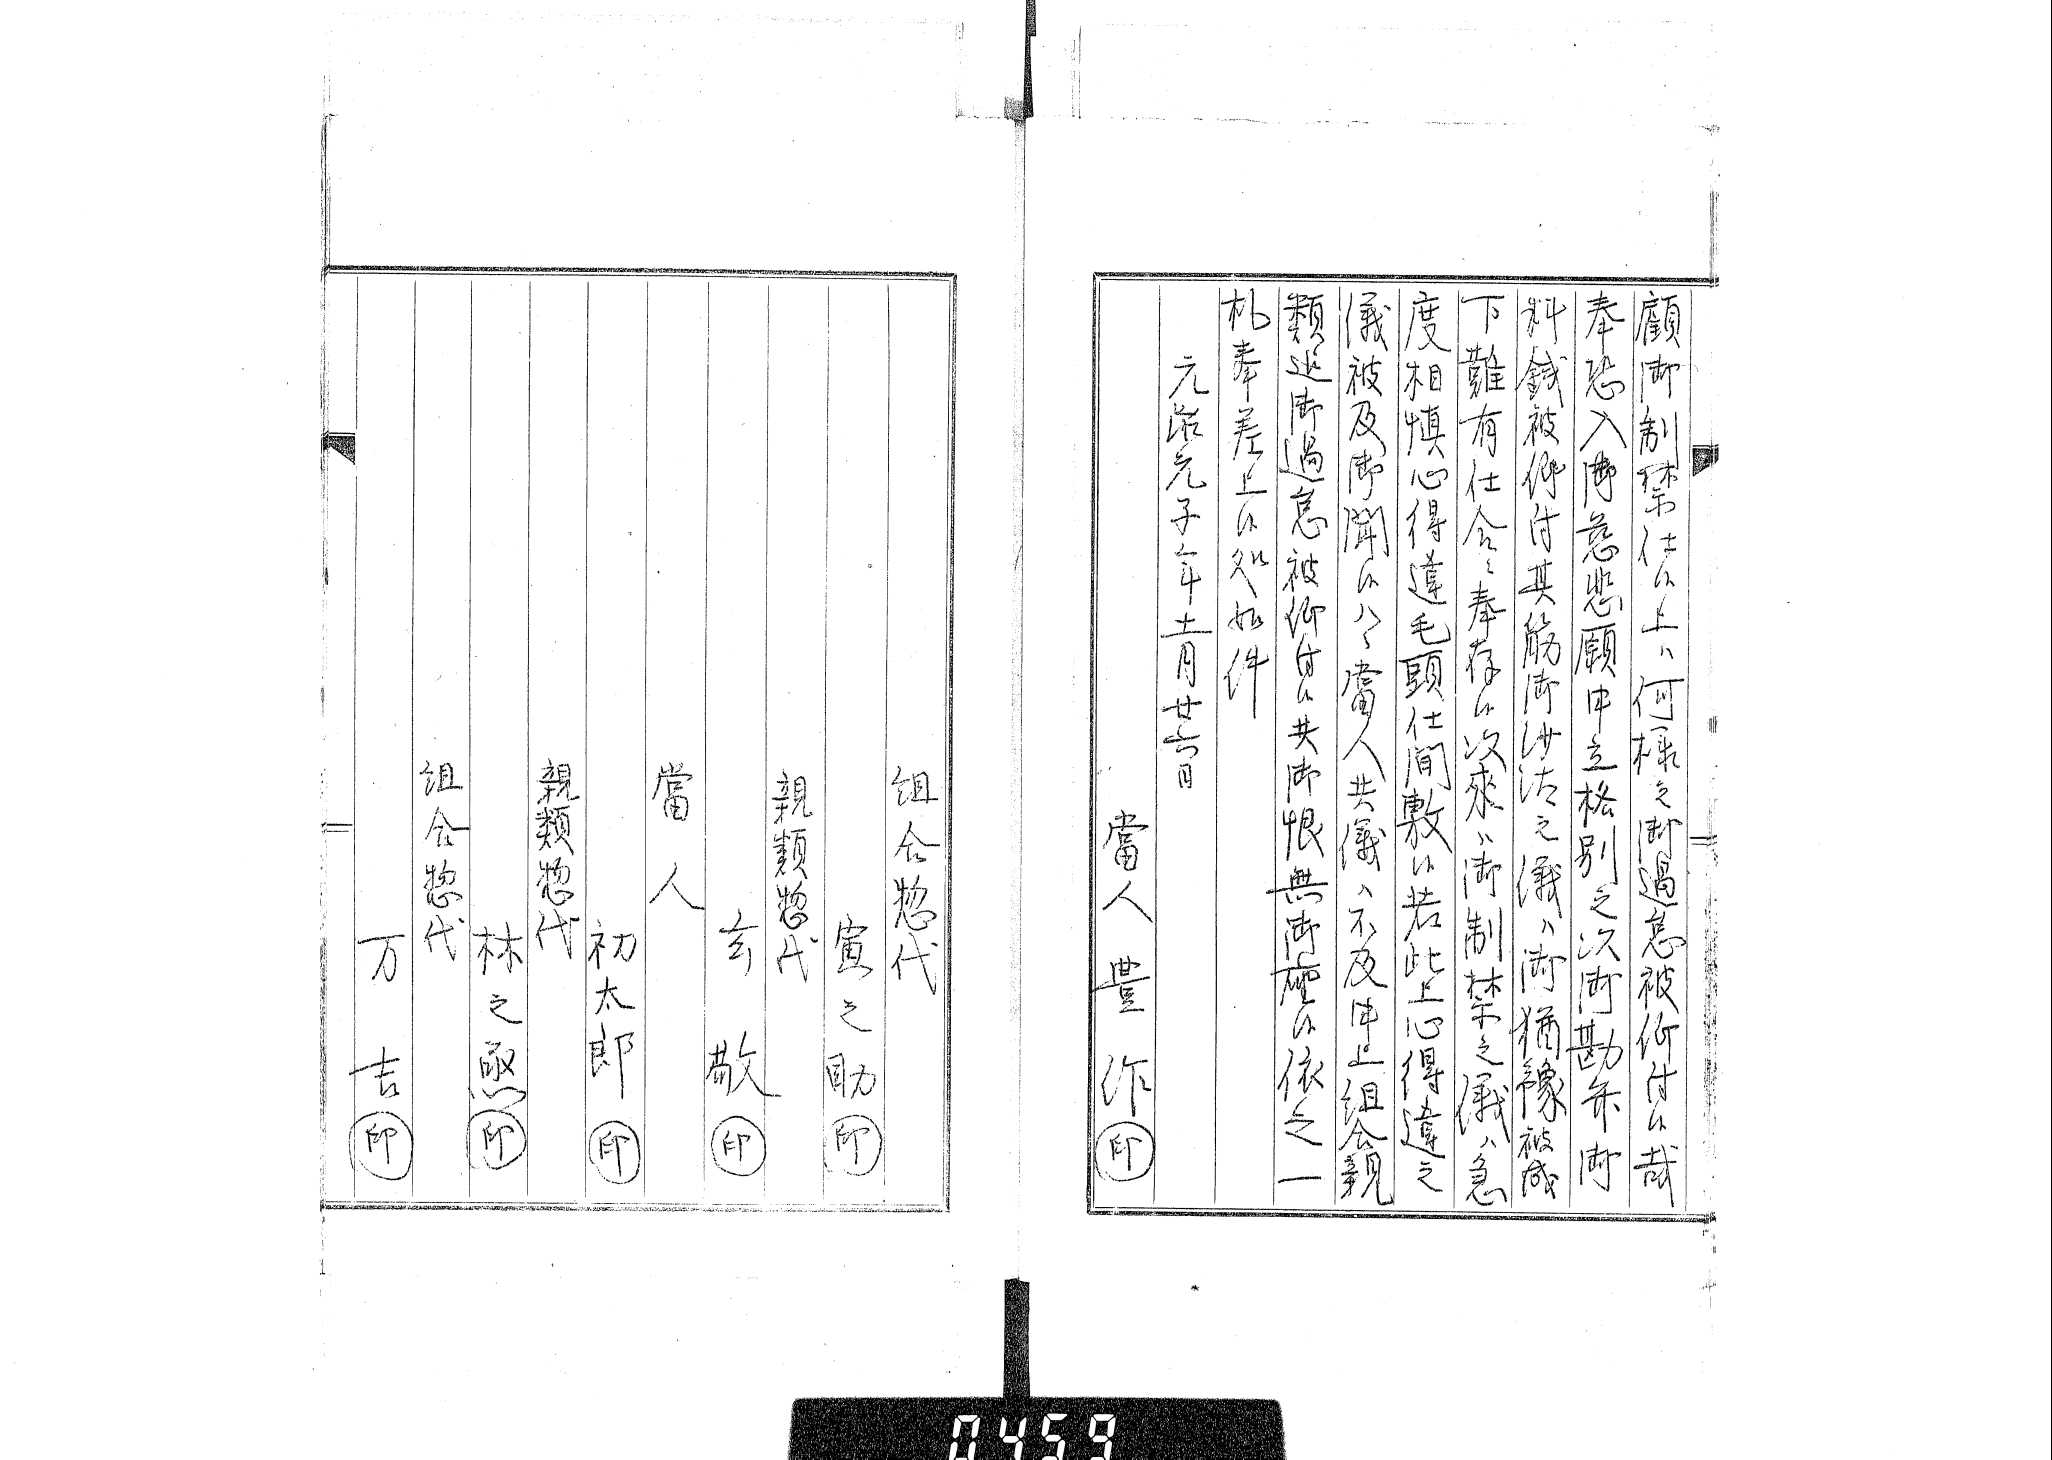 顧御制禁仕候上ハ何様之御過怠被仰付候哉
奉恐入御慈悲願申立格別之次御勘弁御
料銭被仰付其筋御沙汰之儀ハ御猶豫被成
下難有仕合ニ奉存候次来ハ御制禁之儀ハ急
度相慎心得違毛頭仕間敷候若此上心得違之
儀被及御聞候ハヽ當人共儀ハ不及申上組合親
類迄御過怠被仰付候共御恨無御座候依之一
札奉差上候処如件
元治元子年十一月廿六日
當人 豊作 印
組合惣代
寅之助 印
親類惣代
玄敬 印
當人
初太郎 印
親類惣代
林之丞 印
組合惣代
万吉 印
0459